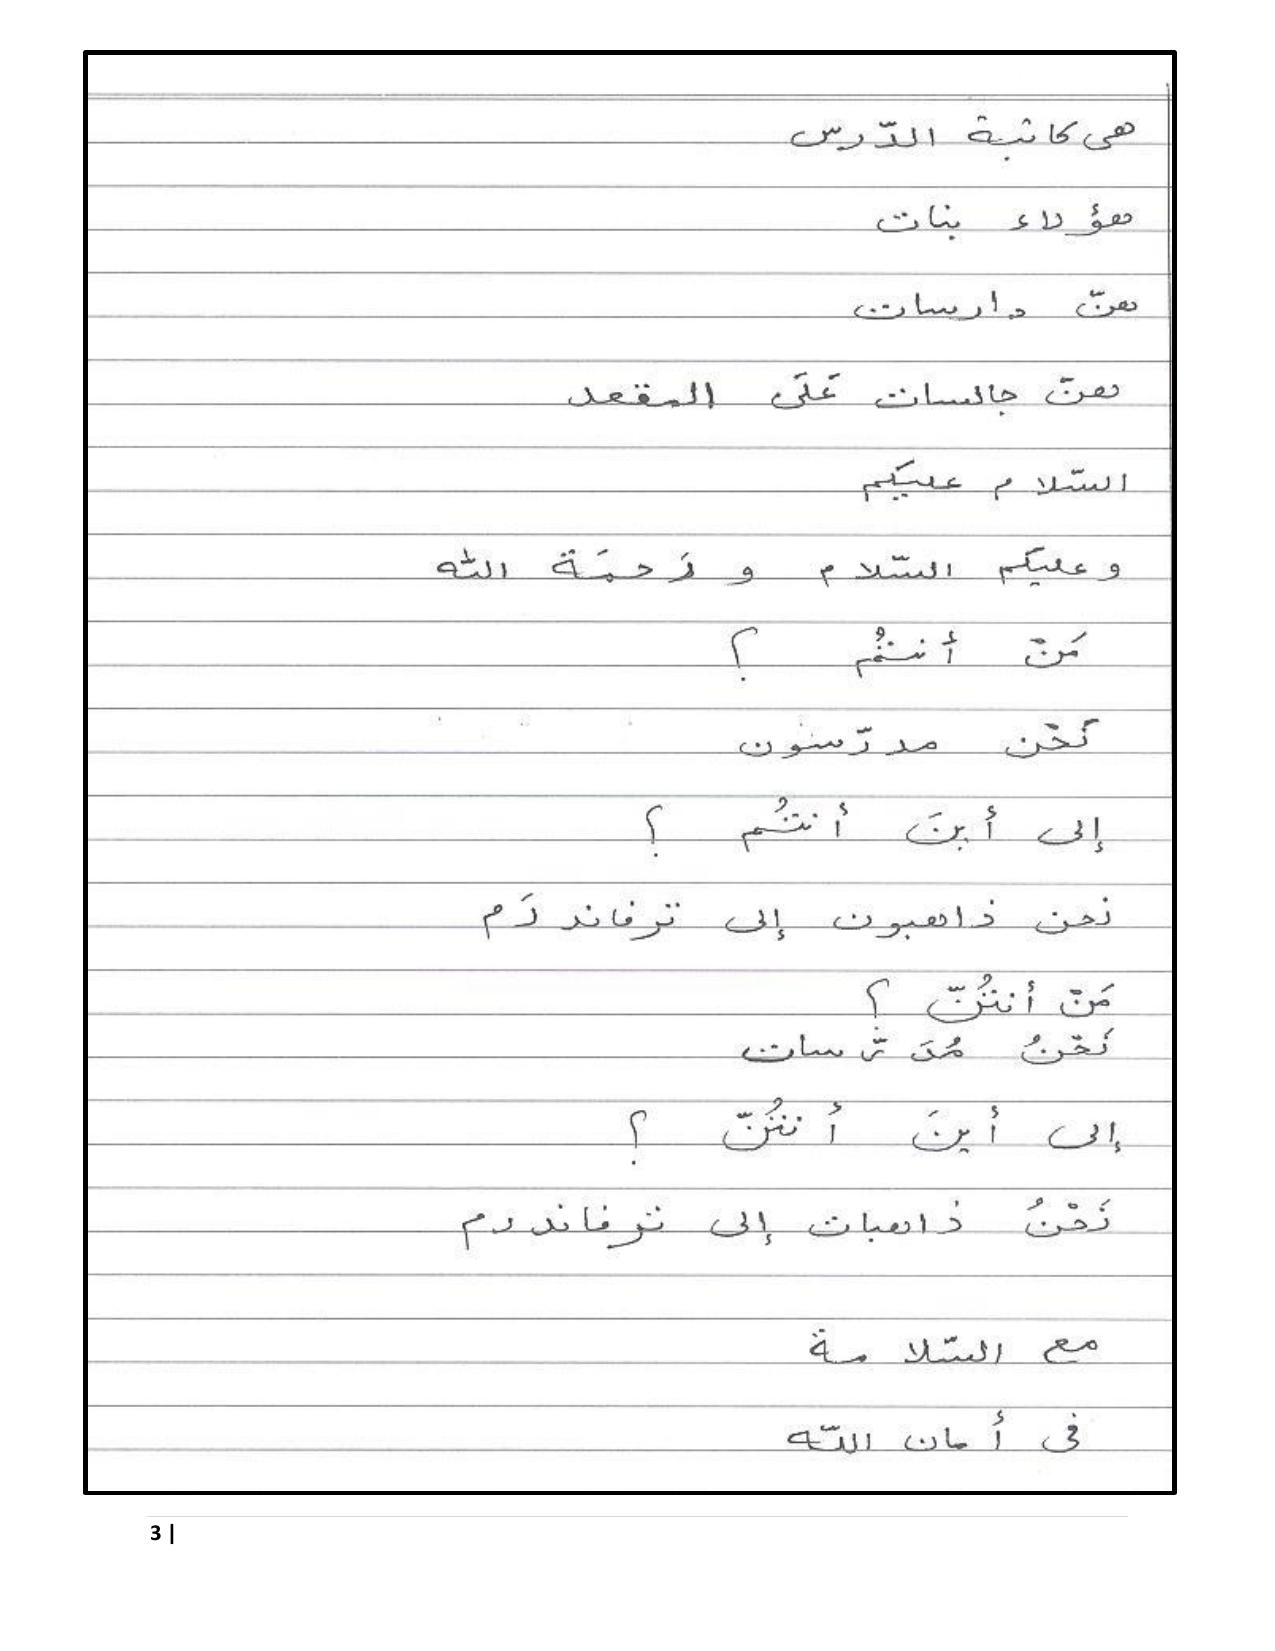 هى كاتبة الدّرس
هؤلاء بنات
هنّ دارسات
هنّ جالسات عَلَى المقعد
السّلام عليكم
وعليكم السّلام و رَحمَة الله
مَنْ أنتُم ؟
نَحْن مدرّسون
إلى أينَ أنتُم ؟
نحن ذاهبون إلى ترفاندرَم
مَنْ أنتُنّ ؟
نَحْنُ مُدَرّسات
إلى أينَ أنتُنّ ؟
نَحْنُ ذاهبات إلى ترفاندرم
مع السّلامة
فى أمان اللّه
3 |